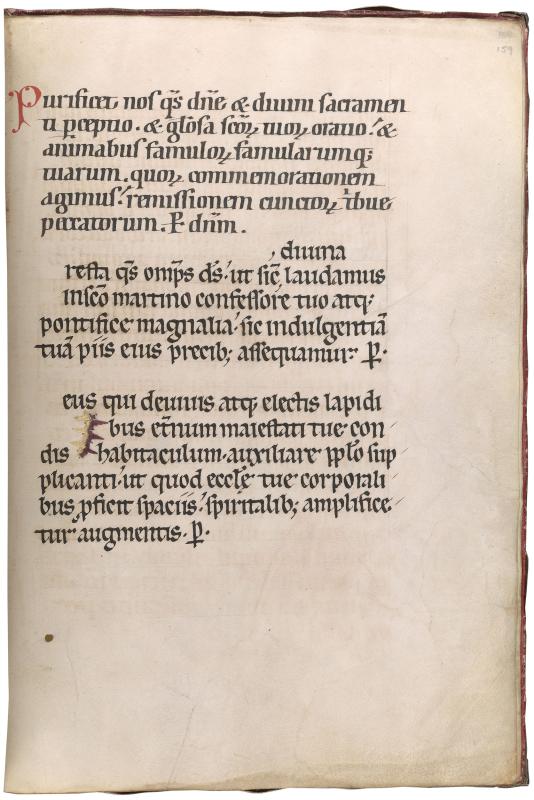 159
Purificet nos qs̄ dn̄e & diuini sacramen
ti ꝑceptio. & gl̄osa sc̄oꝝ tuoꝝ oratio. &
animabus famuloꝝ famularumq;
tuarum. quoꝝ commemorationem
agimus. remissionem cunctoꝝ tribue
peccatorum. ꝑ dn̄m.
, diuina
resta qs̄ omp̄s ds̄. ut sic̄ laudamus
in sc̄o martino confessore tuo atq;
pontifice magnalia. sic indulgentiā
tuā piis eius precib; assequamur. ꝑ.
eus qui de uiuis atq; electis lapidi
bus et̄num maiestati tue con
dis habitaculum. auxiliare pp̄lo sup
plicanti. ut quod eccl̄e tue corporali
bus ꝓficit spaciis. spiritalib; amplifice
tur augmentis. ꝑ.